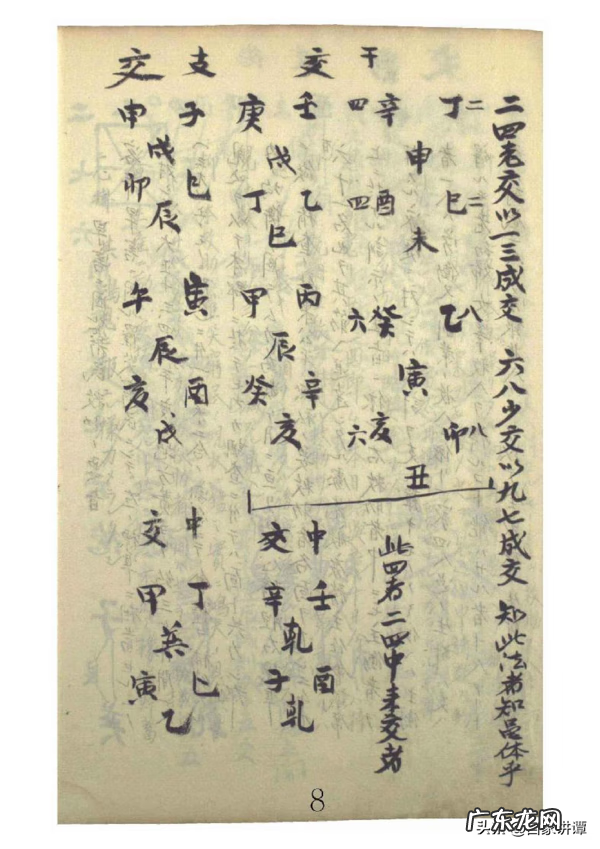 二四老交以一三成交 六八少交以九七成交 知此法者知体乎
二 二 八 八
丁 巳 乙 卯
申 未 寅 丑
干 辛 酉 癸 亥
四 四 六 六
交 壬 乙 丙 辛
戌 巳 辰 亥
庚 丁 甲 癸
支 子 巳 寅 酉
戌 辰 辰 戌
交 申 卯 午 亥
此四者二四中未交者
中 壬 酉
乾 乾
交 辛 子
中 丁 巳
巽 乙
交 甲 寅
8
广东龙网